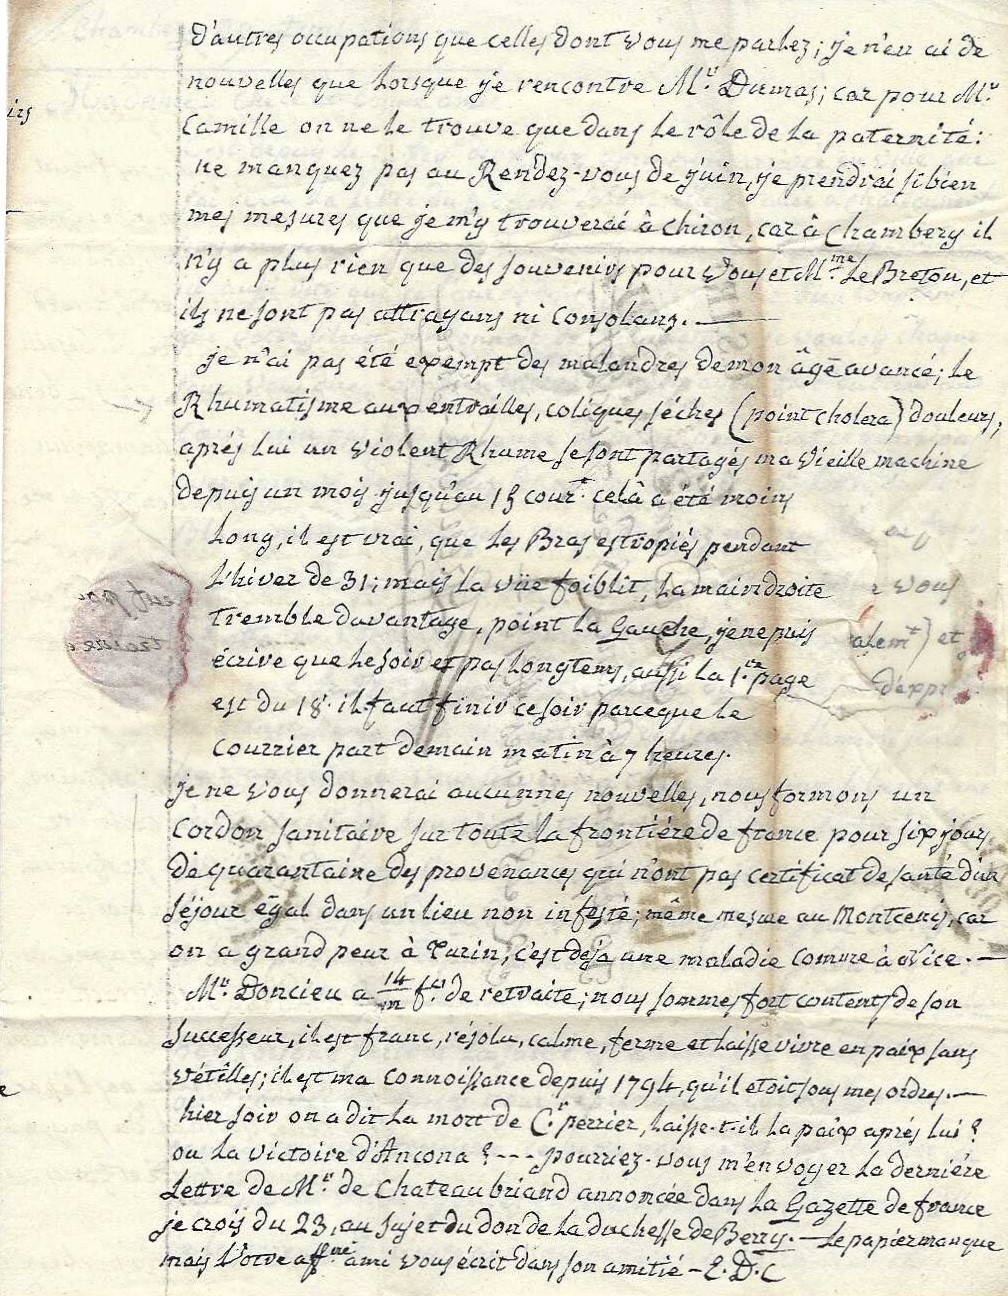 d'autres occupations que celles dont vous me parlez; je n'en ai de
nouvelles que lorsque je rencontre Mr. Dumas; car pour Mr.
irs
Camille on ne le trouve que dans le rôle de la paternité:
ne manquez pas au Rendez-vous de juin, je prendrai si bien
mes mesures que je m'y trouverai à chiron, car à Chambery il
n'y a plus rien que des souvenirs pour vous et Mme. Le Breton, et
ils ne sont pas attrayans ni Consolans. —
je n'ai pas été exempt des malandres de mon âge avancé; le
Rhumatisme aux entrailles, coliques séches (point cholera) douleurs,
aprés lui un violent Rhume se sont partagés ma vieille machine
depuis un mois jusqu'au 15 court. celà a été moins
long, il est vrai, que les Bras estropiés pendant
l'hiver de 31; mais la vüe foiblit, la main droite
r vous
tremble davantage, point la Gauche, je ne puis
alemt) et
écrire que le soir et pas longtems, aussi la 1.ere page
d'exp
est du 18. il faut finir ce soir parceque le
courrier part demain matin à 7 heures.
je ne vous donnerai aucunnes nouvelles, nous formons un
Cordon sanitaire sur toute la frontiére de france pour six jours
de quarantaine des provenances qui n'ont pas certificat de santé d'un
séjour égal dans un lieu non infesté; même mesure au Montcenis, car
on a grand peur à Turin, c'est déja une maladie comme à Nice. —
Mr. Doncieu a 14/m fcs. de retraite; nous sommes fort contents de son
successeur, il est franc, résolu, calme, ferme et laisse vivre en paix sans
vétilles; il est ma connoissance depuis 1794, qu'il etoit sous mes ordres. —
e
hier soir on a dit la mort de Cr. perrier, laisse-t-il la paix aprés lui?
ou la victoire d'Ancona? --- pourriez-vous m'envoyer la derniére
Lettre de Mr. de Chateaubriand annoncée dans la Gazette de france
je crois du 23, au sujet du don de la duchesse de Berry. — le papier manque
mais Votre affné. ami vous écrit dans son amitié — E. D. C